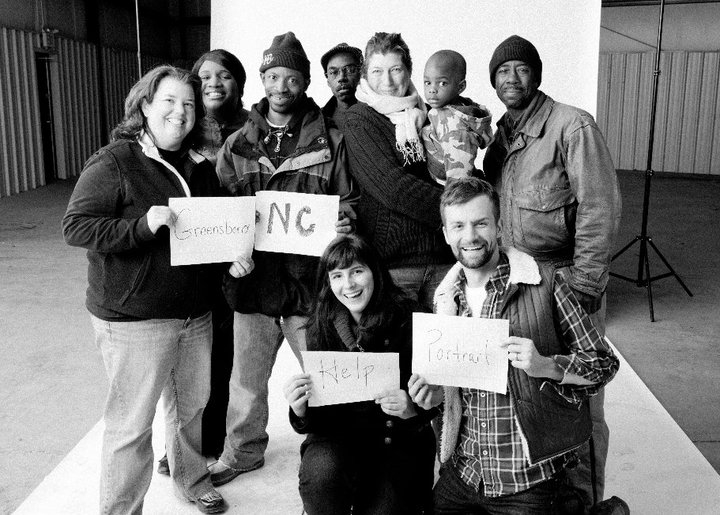 Greensboro
NC
Help
Portrait